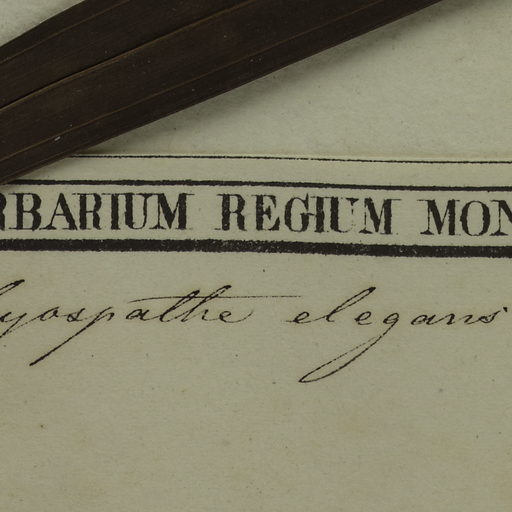 RBARIUM REGIUM MON
yospathe elegans